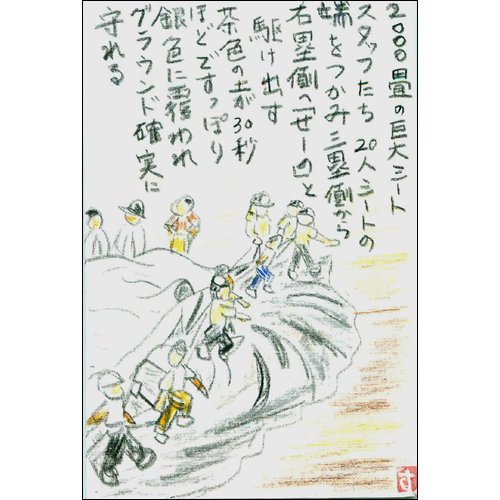 2000畳の巨大シート
スタッフたち 20人シートの
端をつかみ三塁側から
右塁側へ「せーの」と
駆け出す
茶色の土が30秒
ほどですっぽり
銀色に覆われ
グラウンド確実に
守れる
す